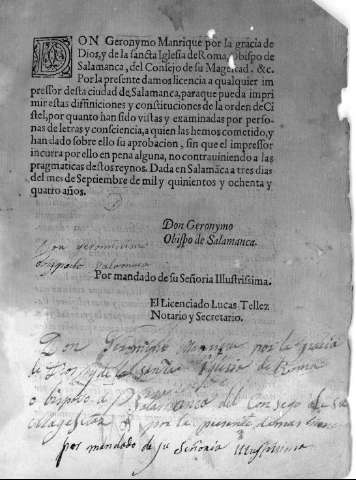 DON Geronymo Manrique por la gracia de
Dios, y de la sancta Iglesia de Roma, Obispo de
Salamanca, del Consejo de su Magestad. &c.
Por la presente damos licencia a qualquier im
pressor desta ciudad de Salamanca, para que pueda impri
mir estas diffiniciones y constituciones de la orden de Ci
stel, por quanto han sido vistas y examinadas por perso-
nas de letras y consciencia, a quien las hemos cometido, y
han dado sobre ello su aprobacion, sin que el impressor
incurra por ello en pena alguna, no contraviniendo a las
pragmaticas destos reynos. Dada en Salamāca a tres dias
del mes de Septiembre de mil y quinientos y ochenta y
quatro años.
Don Geronymo
Obispo de Salamanca.
Don Geronimo
obispo de Salamanca
Por mandado de su Señoria Illustrissima.
El Licenciado Lucas Tellez
Notario y Secretario.
Don Geronimo Manrique por la gracia
de Dios y de la santa Iglesia de Roma
obispo de Salamanca del Consejo de su
Magestad & por la presente damos
por mandado de su Señoria Illustrissima